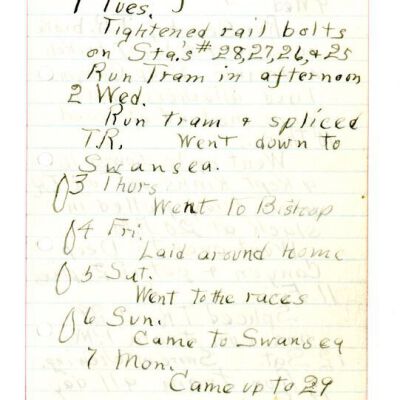 1 Tues.
Tightened rail bolts
on Sta.s # 28, 27, 26, & 25
Run Tram in afternoon
2 Wed.
Run tram & spliced
T.R. Went down to
Swansea.
3 Thurs
Went To Bishop
4 Fri.
Laid around home
5 Sat.
Went to the races
6 Sun.
Came to Swansea
7 Mon.
Came up to 29